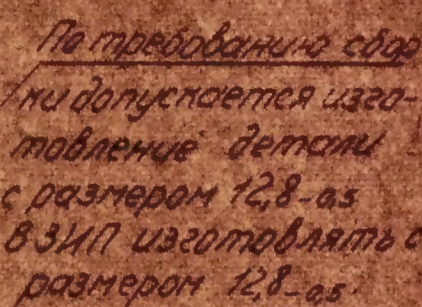 По требованию сбор
ки допускается изго-
товление детали
с размером 12,8-0,5
В ЗИП изготовлять с
размером 12,8-0,5.